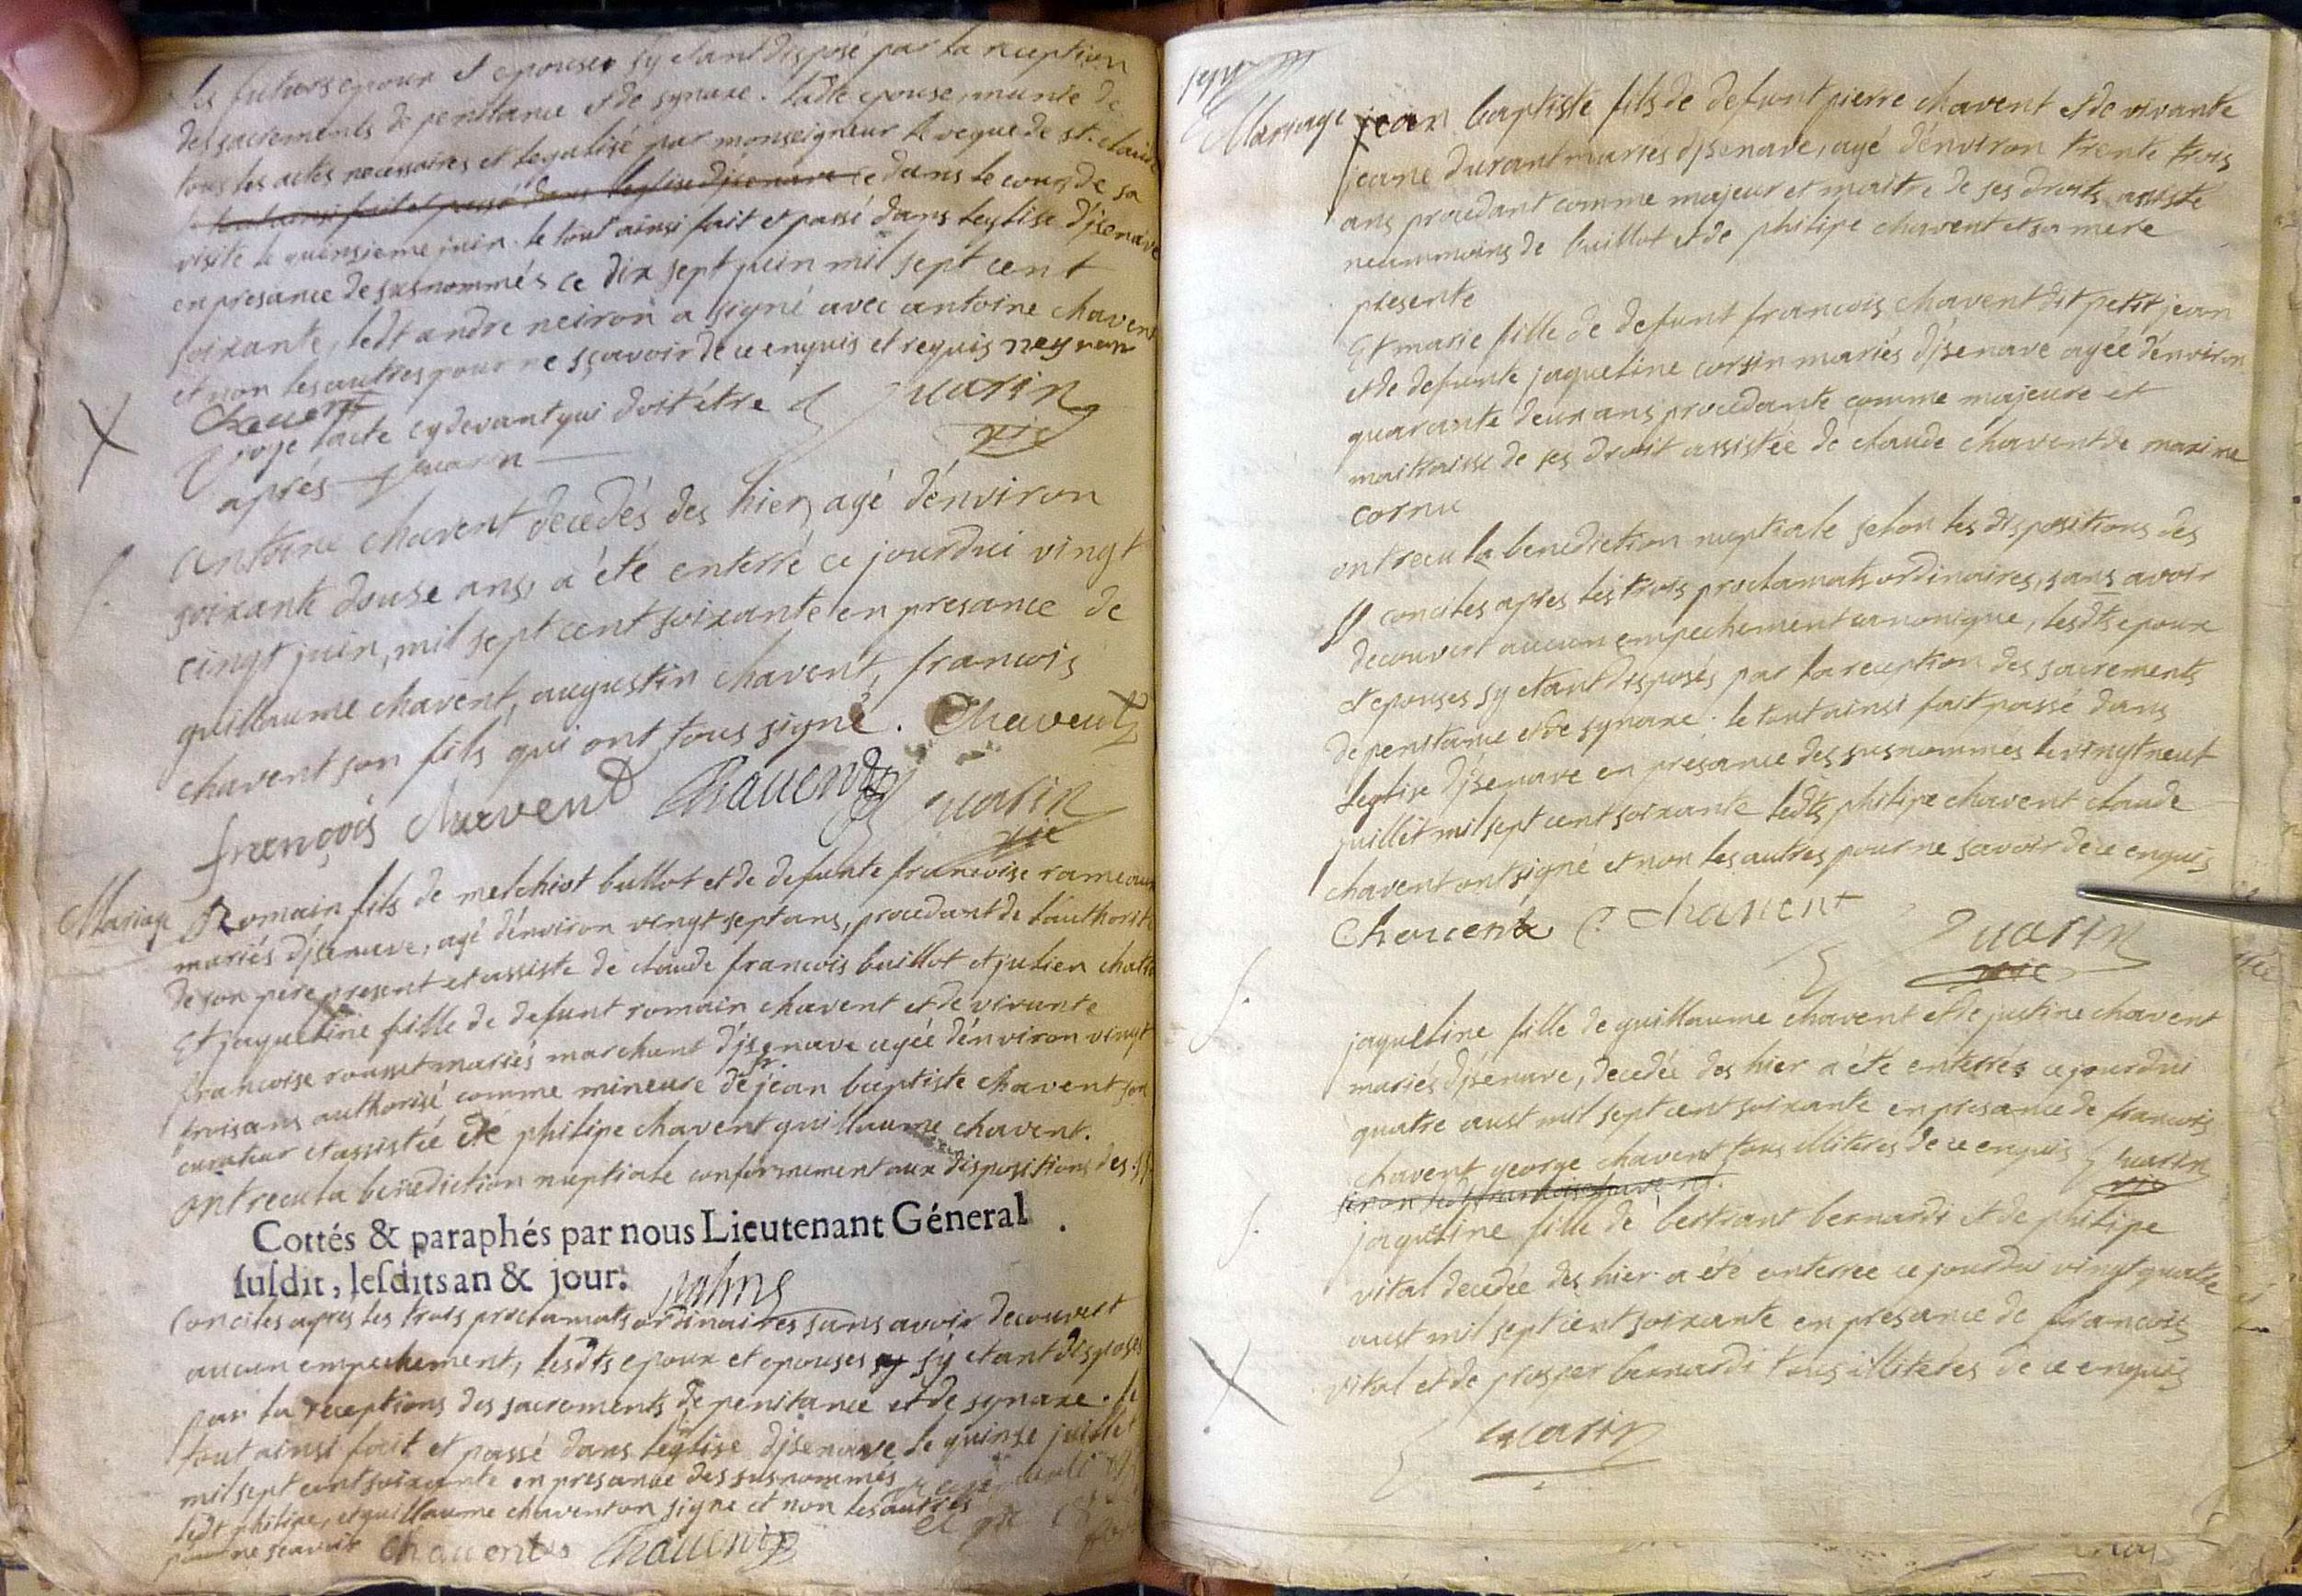 les futurs epoux et epouses sy etant disposé par la reception
des sacrements de penitance et de synaxe. ladte epouse munie de
tous les actes necessaires et legalisé par monseigneur leveque de st. claude
le tout ainsi fait et passé dans leglise djsenave ce dans le cours de sa
visite le quinsieme juin. le tout ainsi fait et passé dans leglise d'jsenave
en presance de susnommés ce dix sept juin mil sept cent
soixante, ledt andre neiron a signé avec antoine chavent
et non les autres pour ne sçavoir de ce enquis et requis neyron
Chavent
voje l'acte cy devant qui doit être quarin
après quarin vic
antoine chavent decedés des hier, agé d'environ
soixante douse ans, a été enterré ce jourdui vingt
cinqt juin, mil sept cent soixante en presance de
guillaume chavent, augustin chavent, francois
chavent son fils qui ont tous signé. Chavent
françois chavent Chavent quarin
vic
Mariage Romain fils de melchiot buillot et de defunte francoise rameaux
mariés djsenave, agé d'environ vingt sept ans, procedant de l'authorité
de son pere present et assisté de claude francois buillot et julien
Et jaqueline fille de defunt romain chavent et de vivante
francoise rousset mariés marchant d'jsenave agée d'environ vingt
trois ans authorisé comme mineure de fr. jean baptiste chavent son
curateur et assistée de philipe chavent guillaume chavent.
ont recu la benediction nuptiale conformement aux dispositions des ss
Cottés & paraphés par nous Lieutenant Géneral
ſuſdit, leſdits an & jour.
conciles apres les trois proclamats ordinaires sans avoir decouvert
aucun empechement, lesdts epoux et epouses sy sy étant disposés
par la receptions des sacrements de penitance et de synaxe. le
tout ainsi fait et passé dans l'eglise djsenave le quinse juillet
mil sept cent soixante en presance des susnommés
ledt philipe, et guillaume chavent on signe et non les autres
pour ne scavoir Chavent Chavent
Mariage jean baptiste fils de defunt pierre chavent et de vivante
jeane durant mariés djsenave, agé d'environ trente trois
ans procedant comme majeur et maitre de ses droits assisté
neammoins de buillot et de philipe chavent et sa mere
presente
Et marie fille de defunt francois chavent dit petit jean
et de defunte jaqueline corsin mariés djsenave agée d'environ
quarante deux ans procedante comme majeure et
maitraisse de ses droit assistée de claude chavent de maxime
cornu
ont recu la benediction nuptiale selon les dispositions des
ss conciles apres les trois proclamats ordinaires, sans avoir
decouvert aucun empechement canonique, lesdts epoux
et epouses sy etant disposés par la reception des sacrements
de penitance et de synaxe. le tout ainsi fait passé dans
leglise djsenave en presance des susnommés le vingt neuf
juillet mil sept cent soixante ledts philipe chavent claude
chavent ont signé et non les autres pour ne savoir de ce enquis
Chavent C. chavent quarin
vic
jaqueline fille de guillaume chavent et de justine chavent
mariés djsenave, decedée des hier a été enterrés ce jourdui
quatre aust mil sept cent soixante en presance de francois
chavent george chavent tous illiteres de ce enquis quarin
vic
jaqueline fille de bertrant bernardi et de philipe
vital decedée des hier a été enterrée ce jourdui vingt quatre
aust mil sept cent soixante en presance de francois
vital et de prosper bernardi tous illiterés de ce enquis
quarin